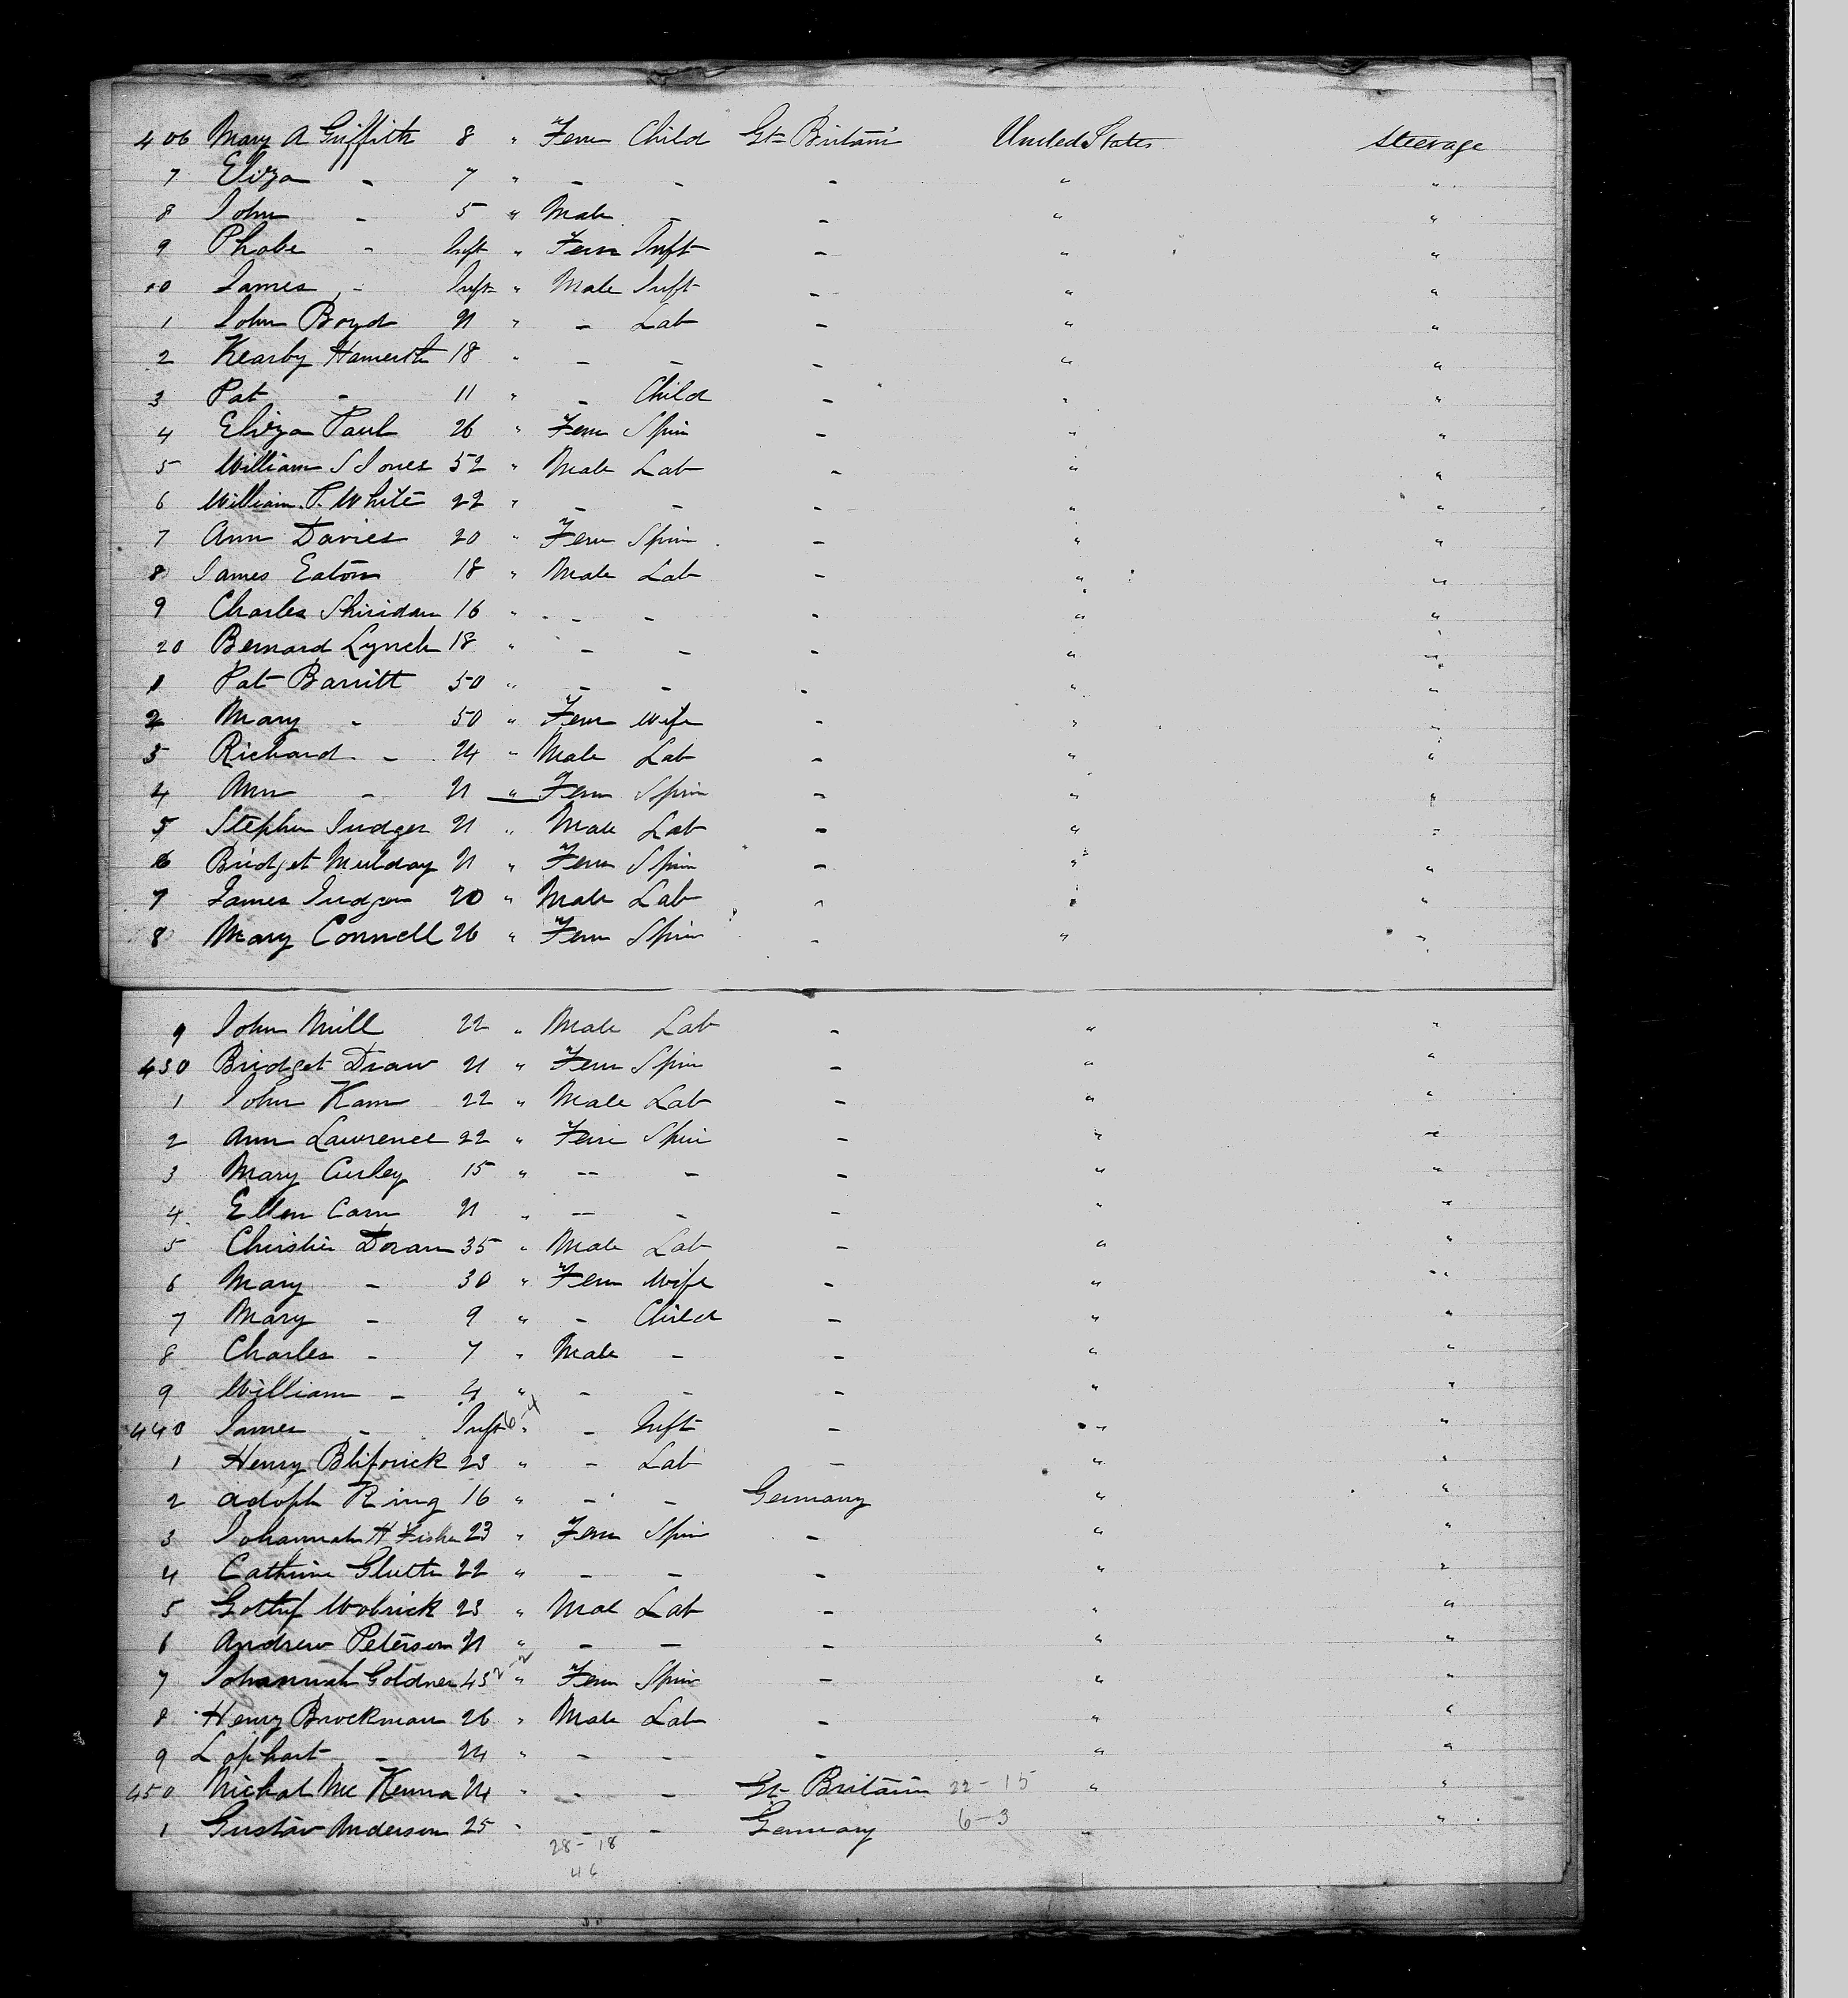 406 Mary A Griffith 8 " Fem Child Gt Britain United States Steerage
7 Eliza - 7 " - - - " "
8 John - 5 " Male - - " "
9 Phobe - Inft " Fem Inft - " "
10 James - Inft " Male Inft - " "
1 John Boyd 21 " - Lab - " "
2 Kearby 18 " - - - " "
3 Pat - 11 " - Child - " "
4 Eliza Paul 26 " Fem Spin - " "
5 William S Jones 52 " Male Lab - " "
6 William P. White 22 " - - - " "
7 Ann Davies 20 " Fem Spin - " "
8 James Eaton 18 " Male Lab - " "
9 Charles Shiridan 16 " - - - " "
20 Bernard Lynch 18 " - - - " "
1 Pat Barritt 50 " - - - " "
2 Mary - 50 " Fem Wife - " "
3 Richard - 24 " Male Lab - " "
4 Ann - 21 " Fem Spin - " "
5 Stephen Judger 21 " Male Lab - " "
6 Bridget Mulday 21 " Fem Spin - " "
7 James 20 " Male Lab " " "
8 Mary Connell 26 " Fem Spin - " "
9 John Mill 22 " Male Lab - " "
430 Bridget Draw 21 " Fem Spin - " "
1 John Kam 22 " Male Lab - " "
2 Ann Lawrence 22 " Fem Spin - " "
3 Mary Curley 15 " -- - - " "
4 Ellen Carn 21 " -- - - " "
5 Christie Doran 35 " Male Lab - " "
6 Mary - 30 " Fem Wife - " "
7 Mary - 9 " - Child - " "
8 Charles - 7 " Male - - " "
9 William - 4 " - - - " "
440 James - Inft 6-4 " - Inft - " "
1 Henry 23 " - Lab - " "
2 Adoph Ring 16 " - - Germany " "
3 Johannah H Fisher 23 " Fem Spin - " "
4 Cathrine 22 " - - - " "
5 Wobrick 23 " Mal Lab - " "
6 Andrew Peterson 21 " - - - " "
7 Johannah Goldner 45 2-2 " Fem Spin - " "
8 Henry Brockman 26 " Male Lab - " "
9 Lophart - 24 " - - - " "
450 Michal Mc Kenna 24 " - - Gt Britain 22-15 " "
1 Gustav Anderson 25 " - - Germany 6-3 " "
28-18
46